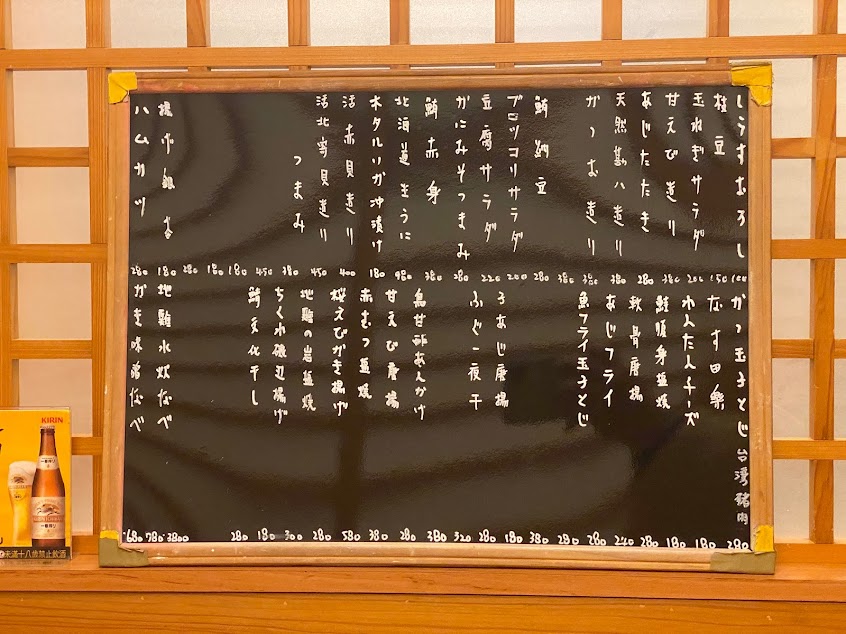 しらすおろし 100
枝豆 150
玉ねぎサラダ 200
甘えび造り 380
あじたたき 280
天然勘八造り 380
かつお造り 380
380
鮪納豆 280
ブロッコリサラダ 200
豆腐サラダ 220
かにみそつまみ 280
鮪赤身 380
北海道生うに 980
ホタルイカ沖漬け 180
活赤貝造り 400
活北寄貝造り 450
つまみ 380
450
180
180
280
揚げ銀杏 180
ハムカツ 280
かつ玉子とじ 台湾豬肉 280
なす田樂 180
わんたんチーズ 180
鮭腹身塩焼 280
軟骨唐揚 240
あじフライ 280
魚フライ玉子とじ 280
380
180
子あじ唐揚 280
ふぐ一夜干 320
380
甘酢あんかけ 280
甘えび唐揚 380
赤むつ塩焼 580
桜えびかき揚げ 280
地鶏の岩塩焼 300
ちくわ磯辺揚げ 180
鯖文化干し 280
3800
地鶏水炊なべ 780
かき味噌なべ 680
KIRIN
未滿十八歲禁止飲酒